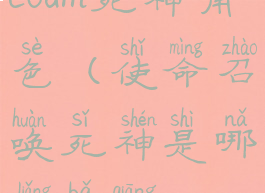 count死神角
sè shǐ mìng zhào
色（使命召
huàn sǐ shén shì nǎ
唤死神是哪
liǎng bǎ qiāng